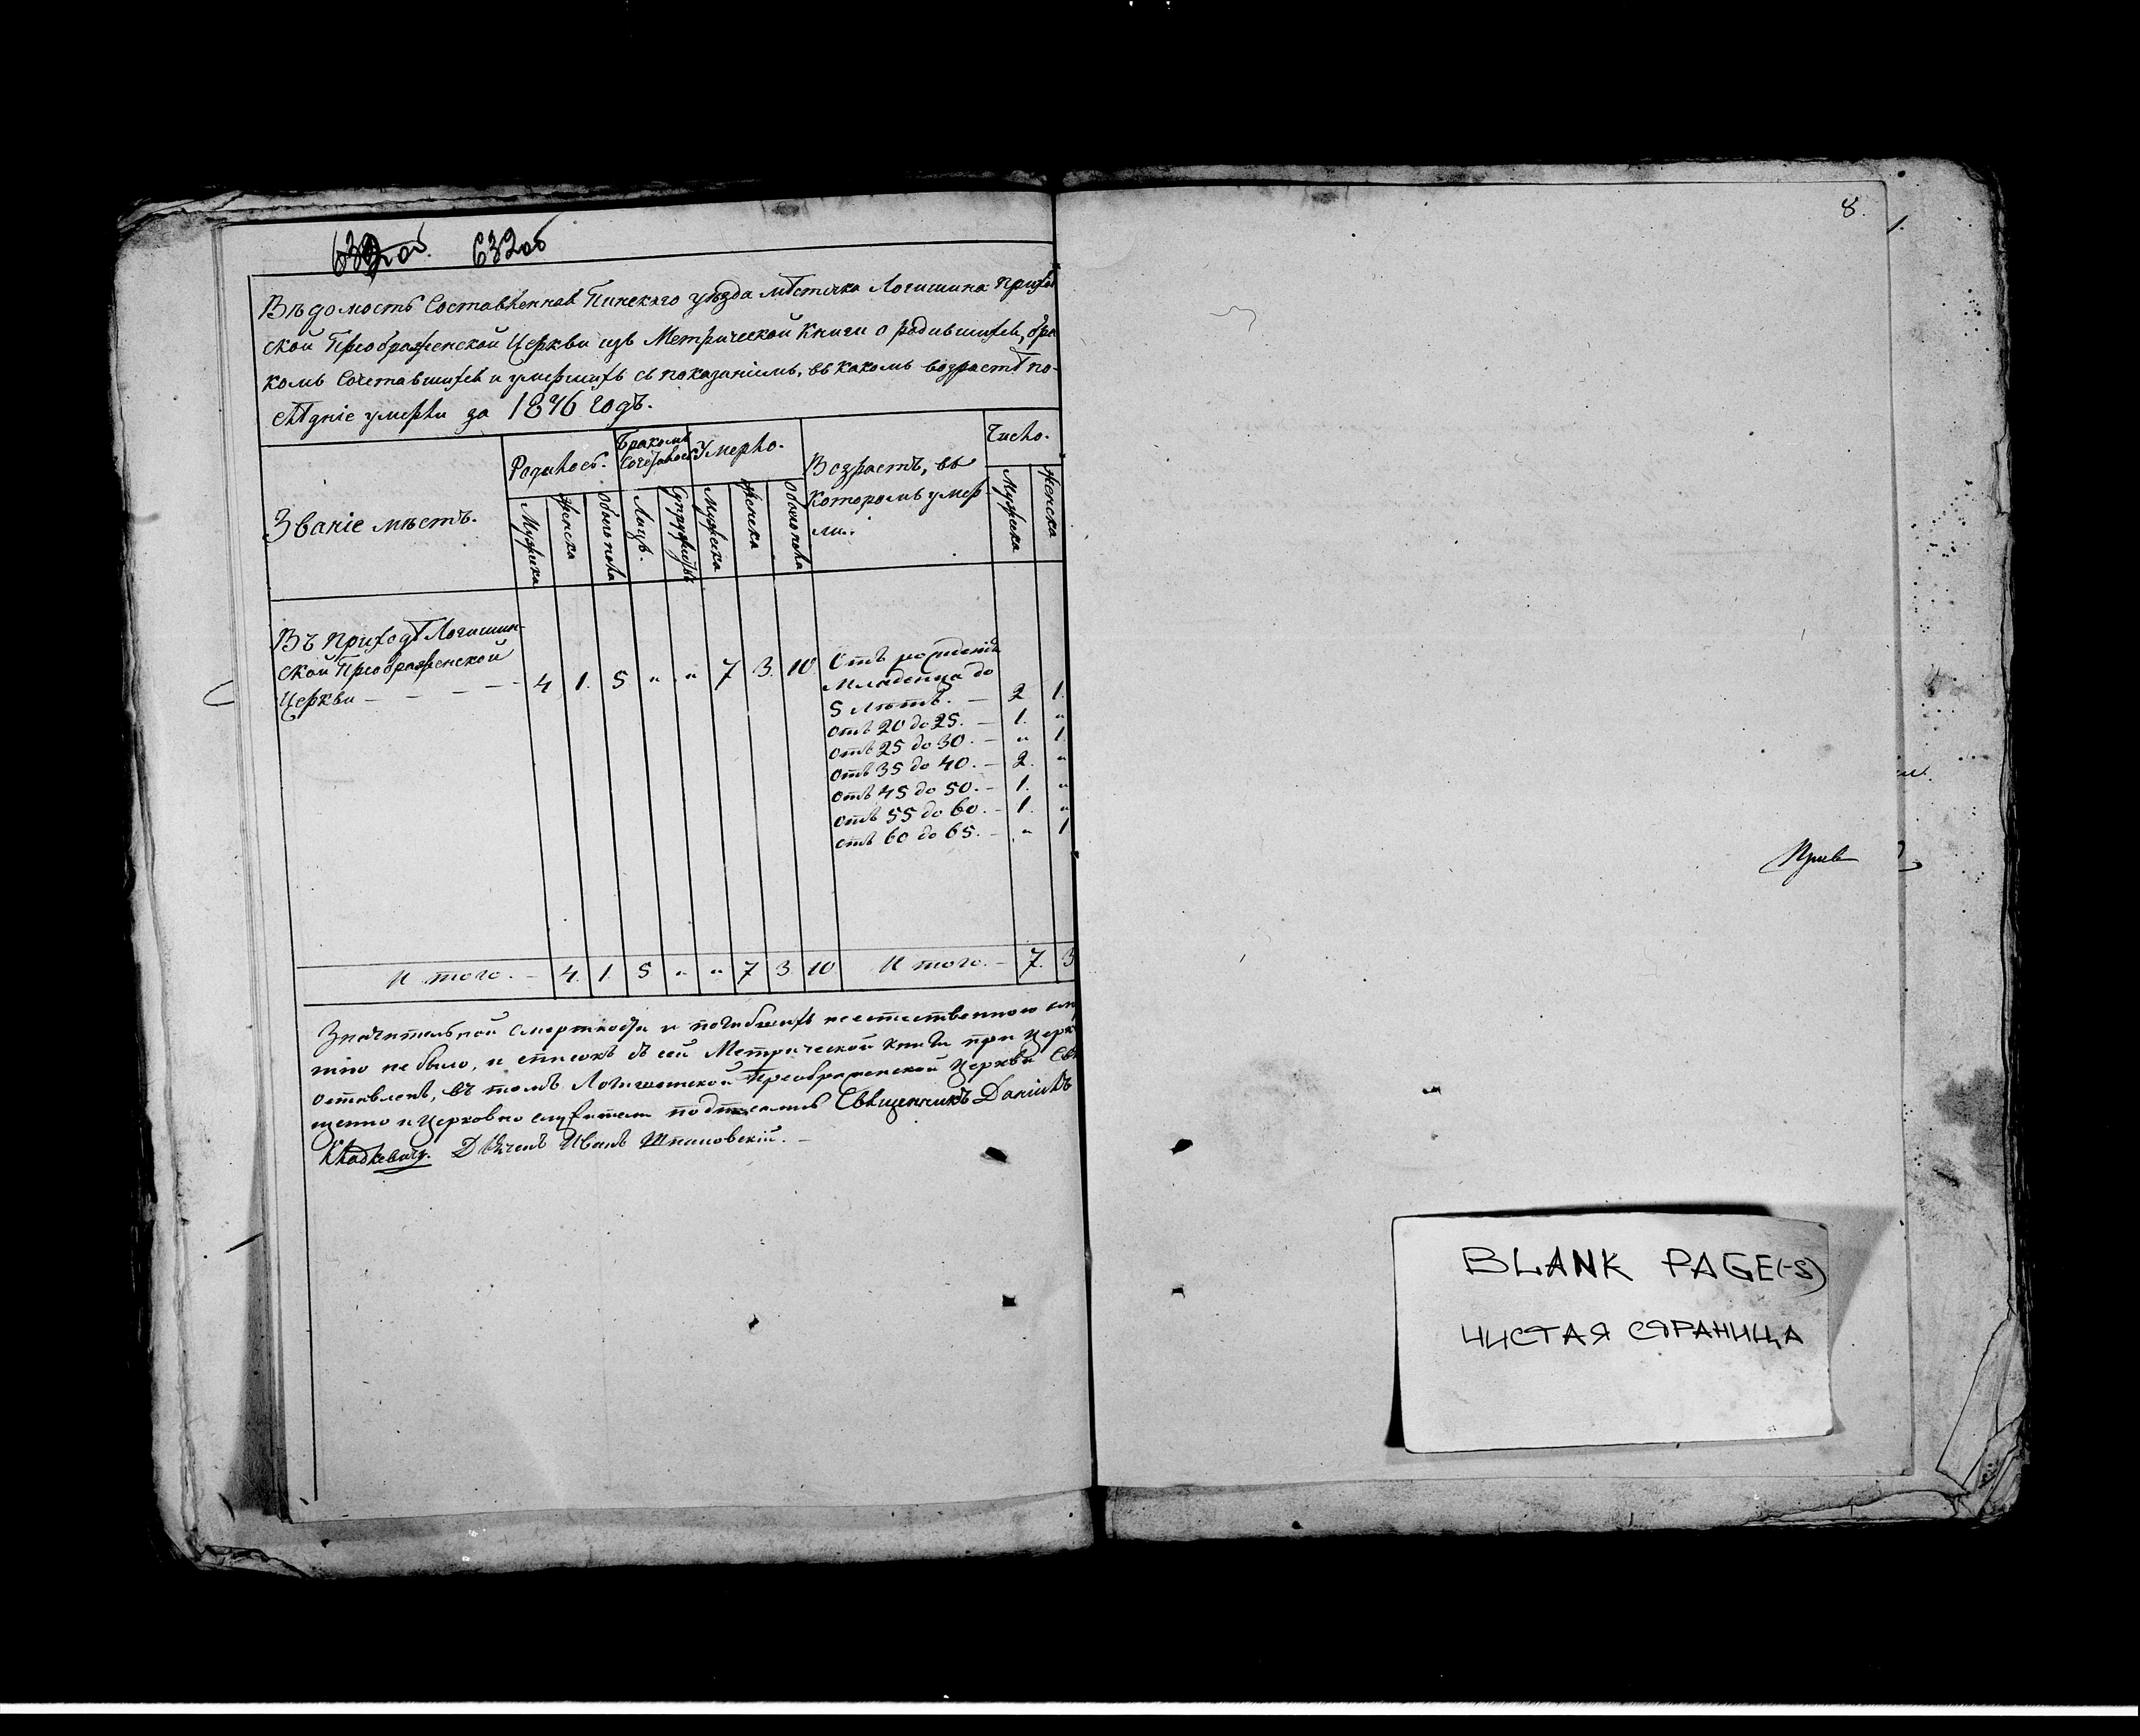 632 об
8.
Вѣдомость Составленная Пинскаго уѣзда мѣстечка Логишина Приход
ской Преображенской Церкви изъ Метрической Книги о родившихся, бра
комъ Сочетавшихся и умершихъ съ показаніемъ, въ какомъ возрастѣ по-
слѣдніе умерли за 1846 годъ.
Званіе мѣстъ.
Родилось.
Бракомъ
Умерло.
Возрастъ, въ
которомъ умер
ли.
Число.
Мужеска
Женска
Обоего пола
Лицъ.
Мужеска
Женска
Обоего пола
Мужеска
Женска
Въ Приходѣ Логишин-
ской Преображенской
Церкви — — — — 4 1. 5 „ „ 7 3. 10.
Отъ рожденія
Младенца до
5 лѣтъ. — 2 1.
отъ 20 до 25. — 1. „
отъ 25 до 30. — „ 1.
отъ 35 до 40. — 2. „
отъ 45 до 50. — 1. „
отъ 55 до 60. — 1. „
отъ 60 до 65. — „ 1
И того. — 4. 1. 5 „ „ 7 3. 10 И того. — 7. 3
Значительной смертности и погибшихъ неестественною
не было, и списокъ съ сей Метрической книги при Церк
оставленъ, въ томъ Логишинской Преображенской Церкви Свя
щенно и Церковно служители подписались Священникъ Даніилъ
Дьячекъ Иванъ
BLANK PAGE(-S)
ЧИСТАЯ СТРАНИЦА